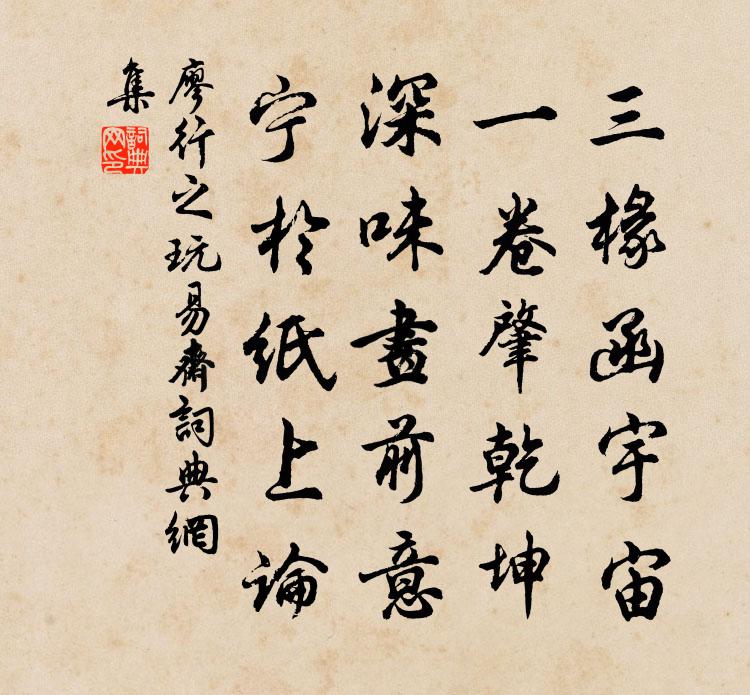 三椽函宇宙
一卷肇乾坤
深味畫前意
宁於紙上論
廖行之玩易齋詞典網
集
詞典網印